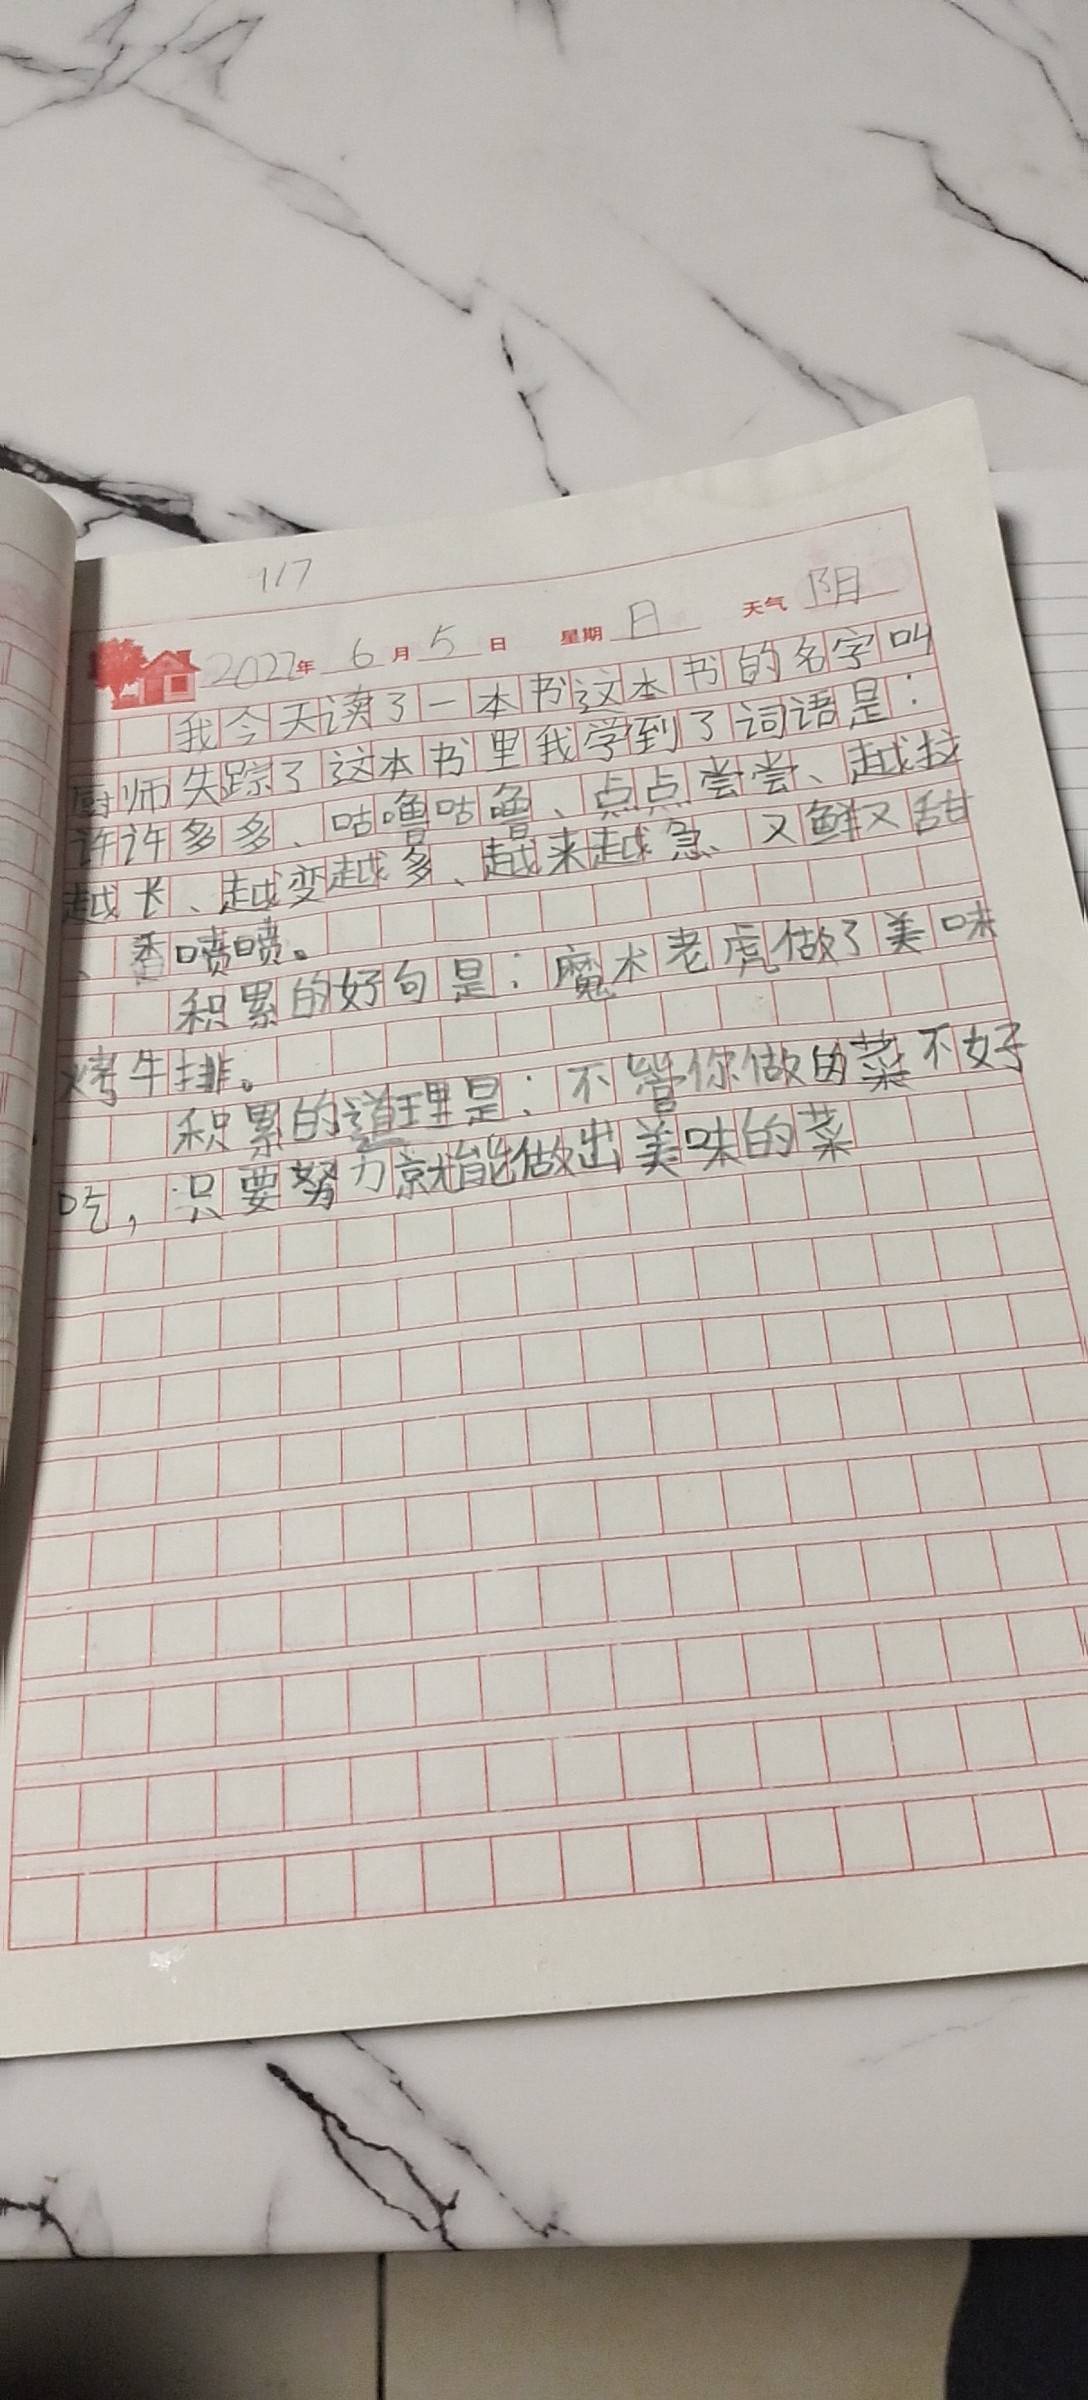 117
2022年 6月5日 星期日 天气 阴
我今天读了一本书这本书的名字叫
厨师失踪了这本书里我学到了词语是：
许许多多、咕噜咕噜、点点尝尝、越拉
越长、越变越多、越来越急、又鲜又甜
、香喷喷。
积累的好句是：魔术老虎做了美味
烤牛排。
积累的道理是：不管你做的菜不好
吃，只要努力就能做出美味的菜